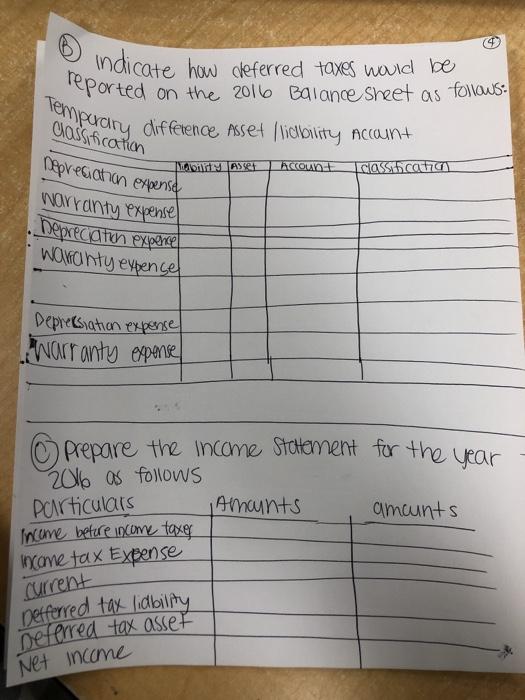 ④
Ⓑ indicate how deferred taxes would be
reported on the 2016 Balance Sheet as follows:
Temporary difference Asset / liability Account
classification
liability Asset Account classification
Depreciation expense
warranty expense
Depreciation expence
warranty expence
Depressiation expense
Warranty expense
Ⓒ prepare the income Statement for the year
2016 as follows
particulars Amounts amounts
Income before income taxes
income tax Expense
current
Defferred tax liability
Deferred tax asset
Net income